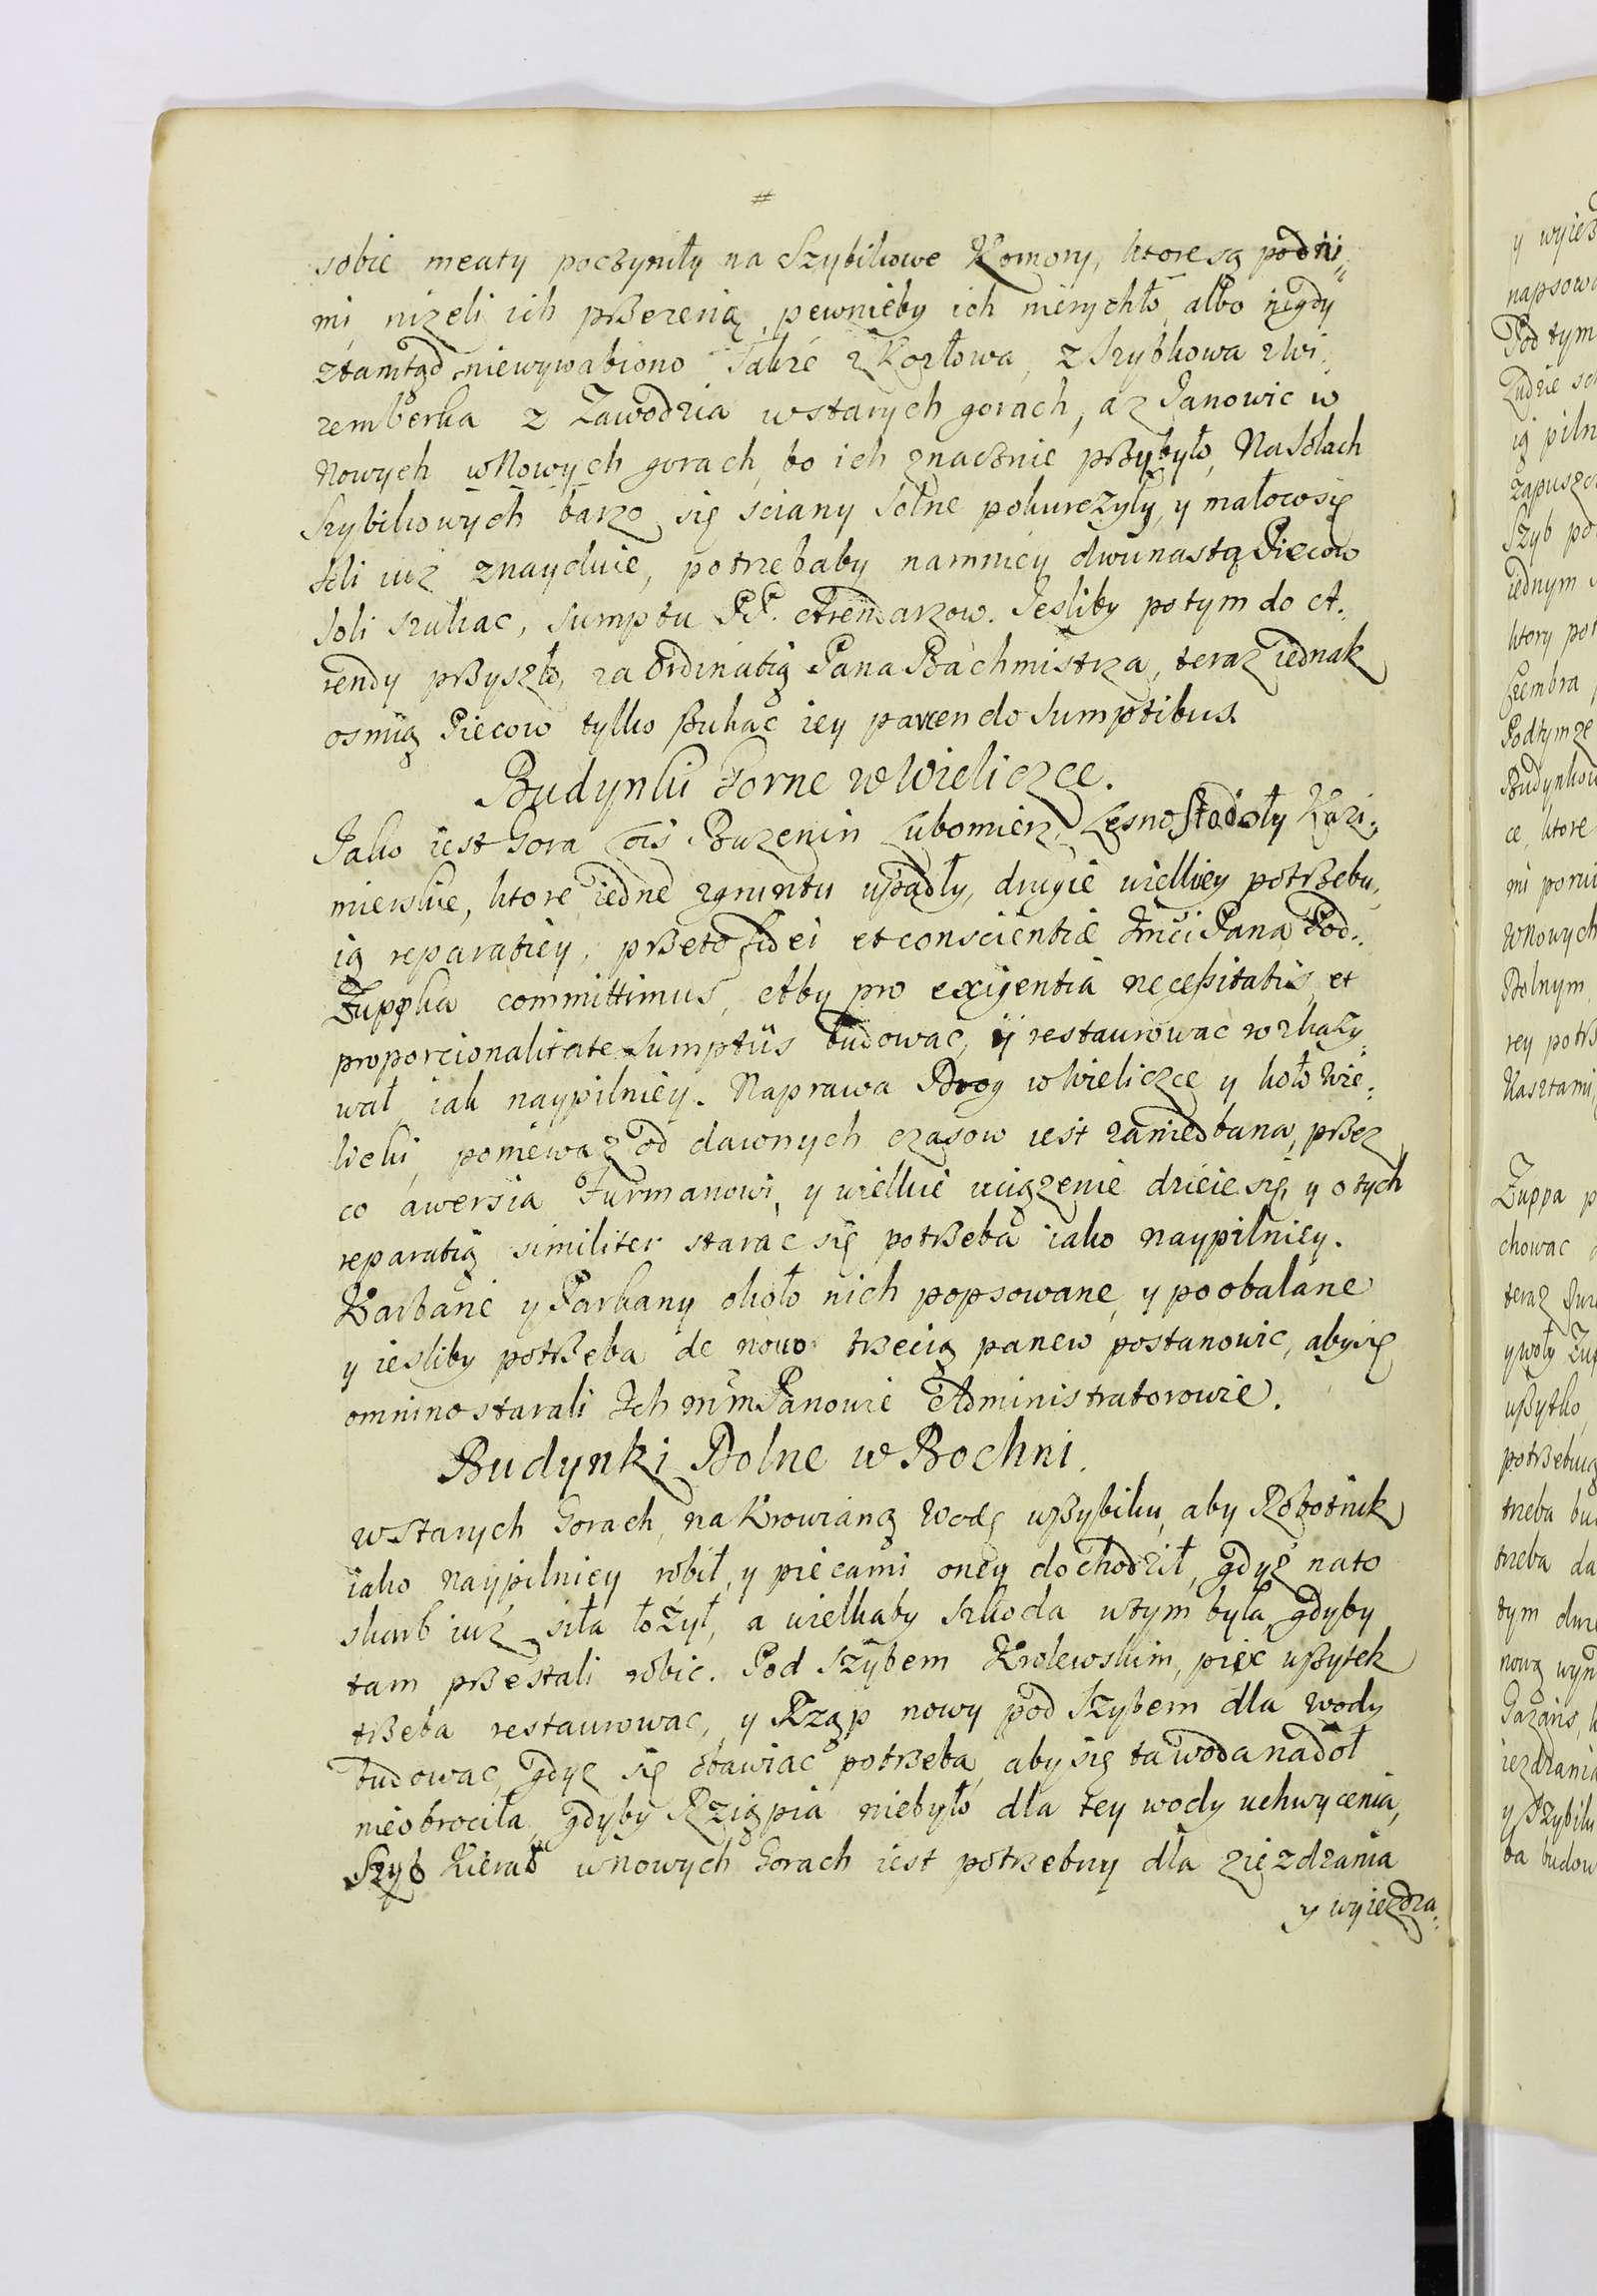 #
sobie meaty poczyniły na Szybikowe Komory, ktore są pod ni„
mi, nizeli ich przerenią, pewnieby ich nierychło, albo nigdy
ztamtąd niewywabiono Takze z Kozłowa, z Szybkowa z Wi„
zemberka z Zawodzia wstarych gorach, a z Janowic w
Nowych wNowych gorach, bo ich znacznie przybyło, Na Solach
Szybikowych barzo się sciany solne pokurczyły, y małocosię
Soli iuż znayduie, potrzebaby namniey dwunastą Piecow
Soli szukac, sumptu PP. Arendarzow. Jesliby potym do A„
rendy przyszło, za Ordinatią Pana Bachmistrza, teraz iednak
osmią Piecow tylko szukać iey parcendo sumptibus.
Budynki Gorne w Wieliczce.
Jako iest Gora Cois Buzenin Lubomierz, Lesno Stodoły Kazi„
mierskie, ktore iedne zgruntu upadły, drugie wielkiey potrzebu„
ią reparatiey, przeto fidei et conscientiæ Jmści Pana Pod„
Zuppka committimus, Aby pro exigentia necessitatis, et
proporcionalitate Sumptûs budowac, ÿ restaurowac rozkazy„
wał iak naypilniey. Naprawa Drog w Wieliczce y koło Wie„
liczki, poniewaz od dawnych czasow iest zaniedbana, przez
co awersia Furmanowi, y wielkie uciązenie dzieie się, y o tych
reparatią similiter starac się potrzeba iako naypilniey.
Karbarie y Parkany około nich popsowane, y poobalane
y iesliby potrzeba de novo trzecią panew postanowic, aby się
omnino starali Ich mm Panowie Administratorowie.
Budynki Dolne w Bochni.
w Starych Gorach, na Krowianą Wodę wszybiku, aby Robotnik
iako naypilniey robił, y piecami oney dochodził, gdyż na to
skarb iuż siła łożył, a wielkaby szkoda wtym była, gdyby
tam przestali robic. Pod Szybem Krolewskim, piec wszytek
trzeba restaurowac, y Rząp nowy pod Szybem dla wody
budowac, gdyz się obawiac potrzeba, aby się ta woda nadoł
nieobrociła, gdyby Rząpia niebyło dla tey wody uchwycenia,
Szyb Kierat wnowych Gorach iest potrzebny dla ziezdzania
y wyiezdza„